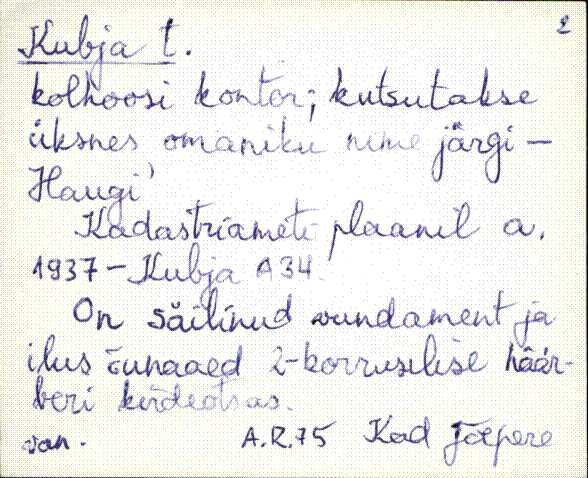 2
Kubja t.
kolhoosi kontor; kutsutakse
üksnes omaniku nime järgi –
Haugi'
Kadastriameti plaanil a.
1937 – Kubja A34.
On säilinud vundament ja
ilus õunaaed 2-korruselise häär-
beri kirdeotsas.
van. A.R.75 Kad Jõepere